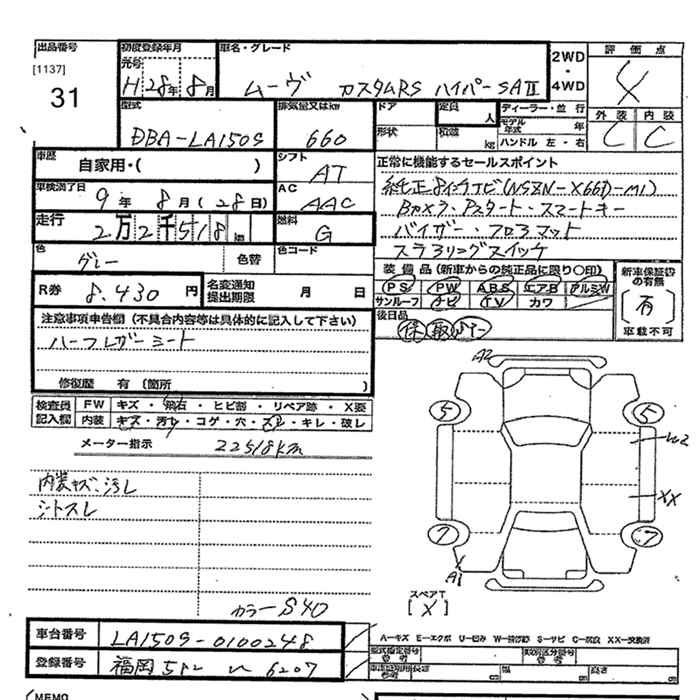 出品番号
[1137]
31
初度登録年月
元号
H 28年 8月
車名・グレード
ムーヴ カスタムRS ハイパーSAⅡ
2WD
・
4WD
評価点
4
外装 内装
C C
型式
DBA-LA150S
排気量又はkw
660
ドア
形状
定員
人
積載
kg
ディーラー・並行
モデル
年式 年
ハンドル 左・右
車歴
自家用・( )
シフト
AT
正常に機能するセールスポイント
純正8インチナビ(NSZN-X66D-M1)
Bカメラ・Pスタート・スマートキー
バイザー・フロアマット
ステアリングスイッチ
車検満了日
9年 8月(28日)
AC
AAC
走行
2万2千518km
燃料
G
色
グレー
色替
色コード
装備品(新車からの純正品に限り○印)
PS PW ABS エアB アルミW
サンルーフ ナビ TV カワ
後日品
新車保証書
の有無
(有)
車載不可
R券
8,430円
名変通知
提出期限
月 日
注意事項申告欄(不具合内容等は具体的に記入して下さい)
ハーフレザーシート
修復歴 有(箇所 )
検査員
記入欄
FW キズ・飛石・ヒビ割・リペア跡・X要
内装 キズ・汚レ・コゲ・穴・スレ・キレ・破レ
メーター指示 22518km
内装キズ、汚レ
シートスレ
カラーS40
A2
5 5
W2
XX
7 7
A1
スペアT
[X]
車台番号 LA150S-0100248
登録番号 福岡 581 い 6207
A-キズ E-エクボ U-凹み W-補修跡 S-サビ C-腐食 XX-交換済
型式指定番号
参考
類別区分番号
参考
長さ
参考 cm
幅 cm
高さ cm
MEMO